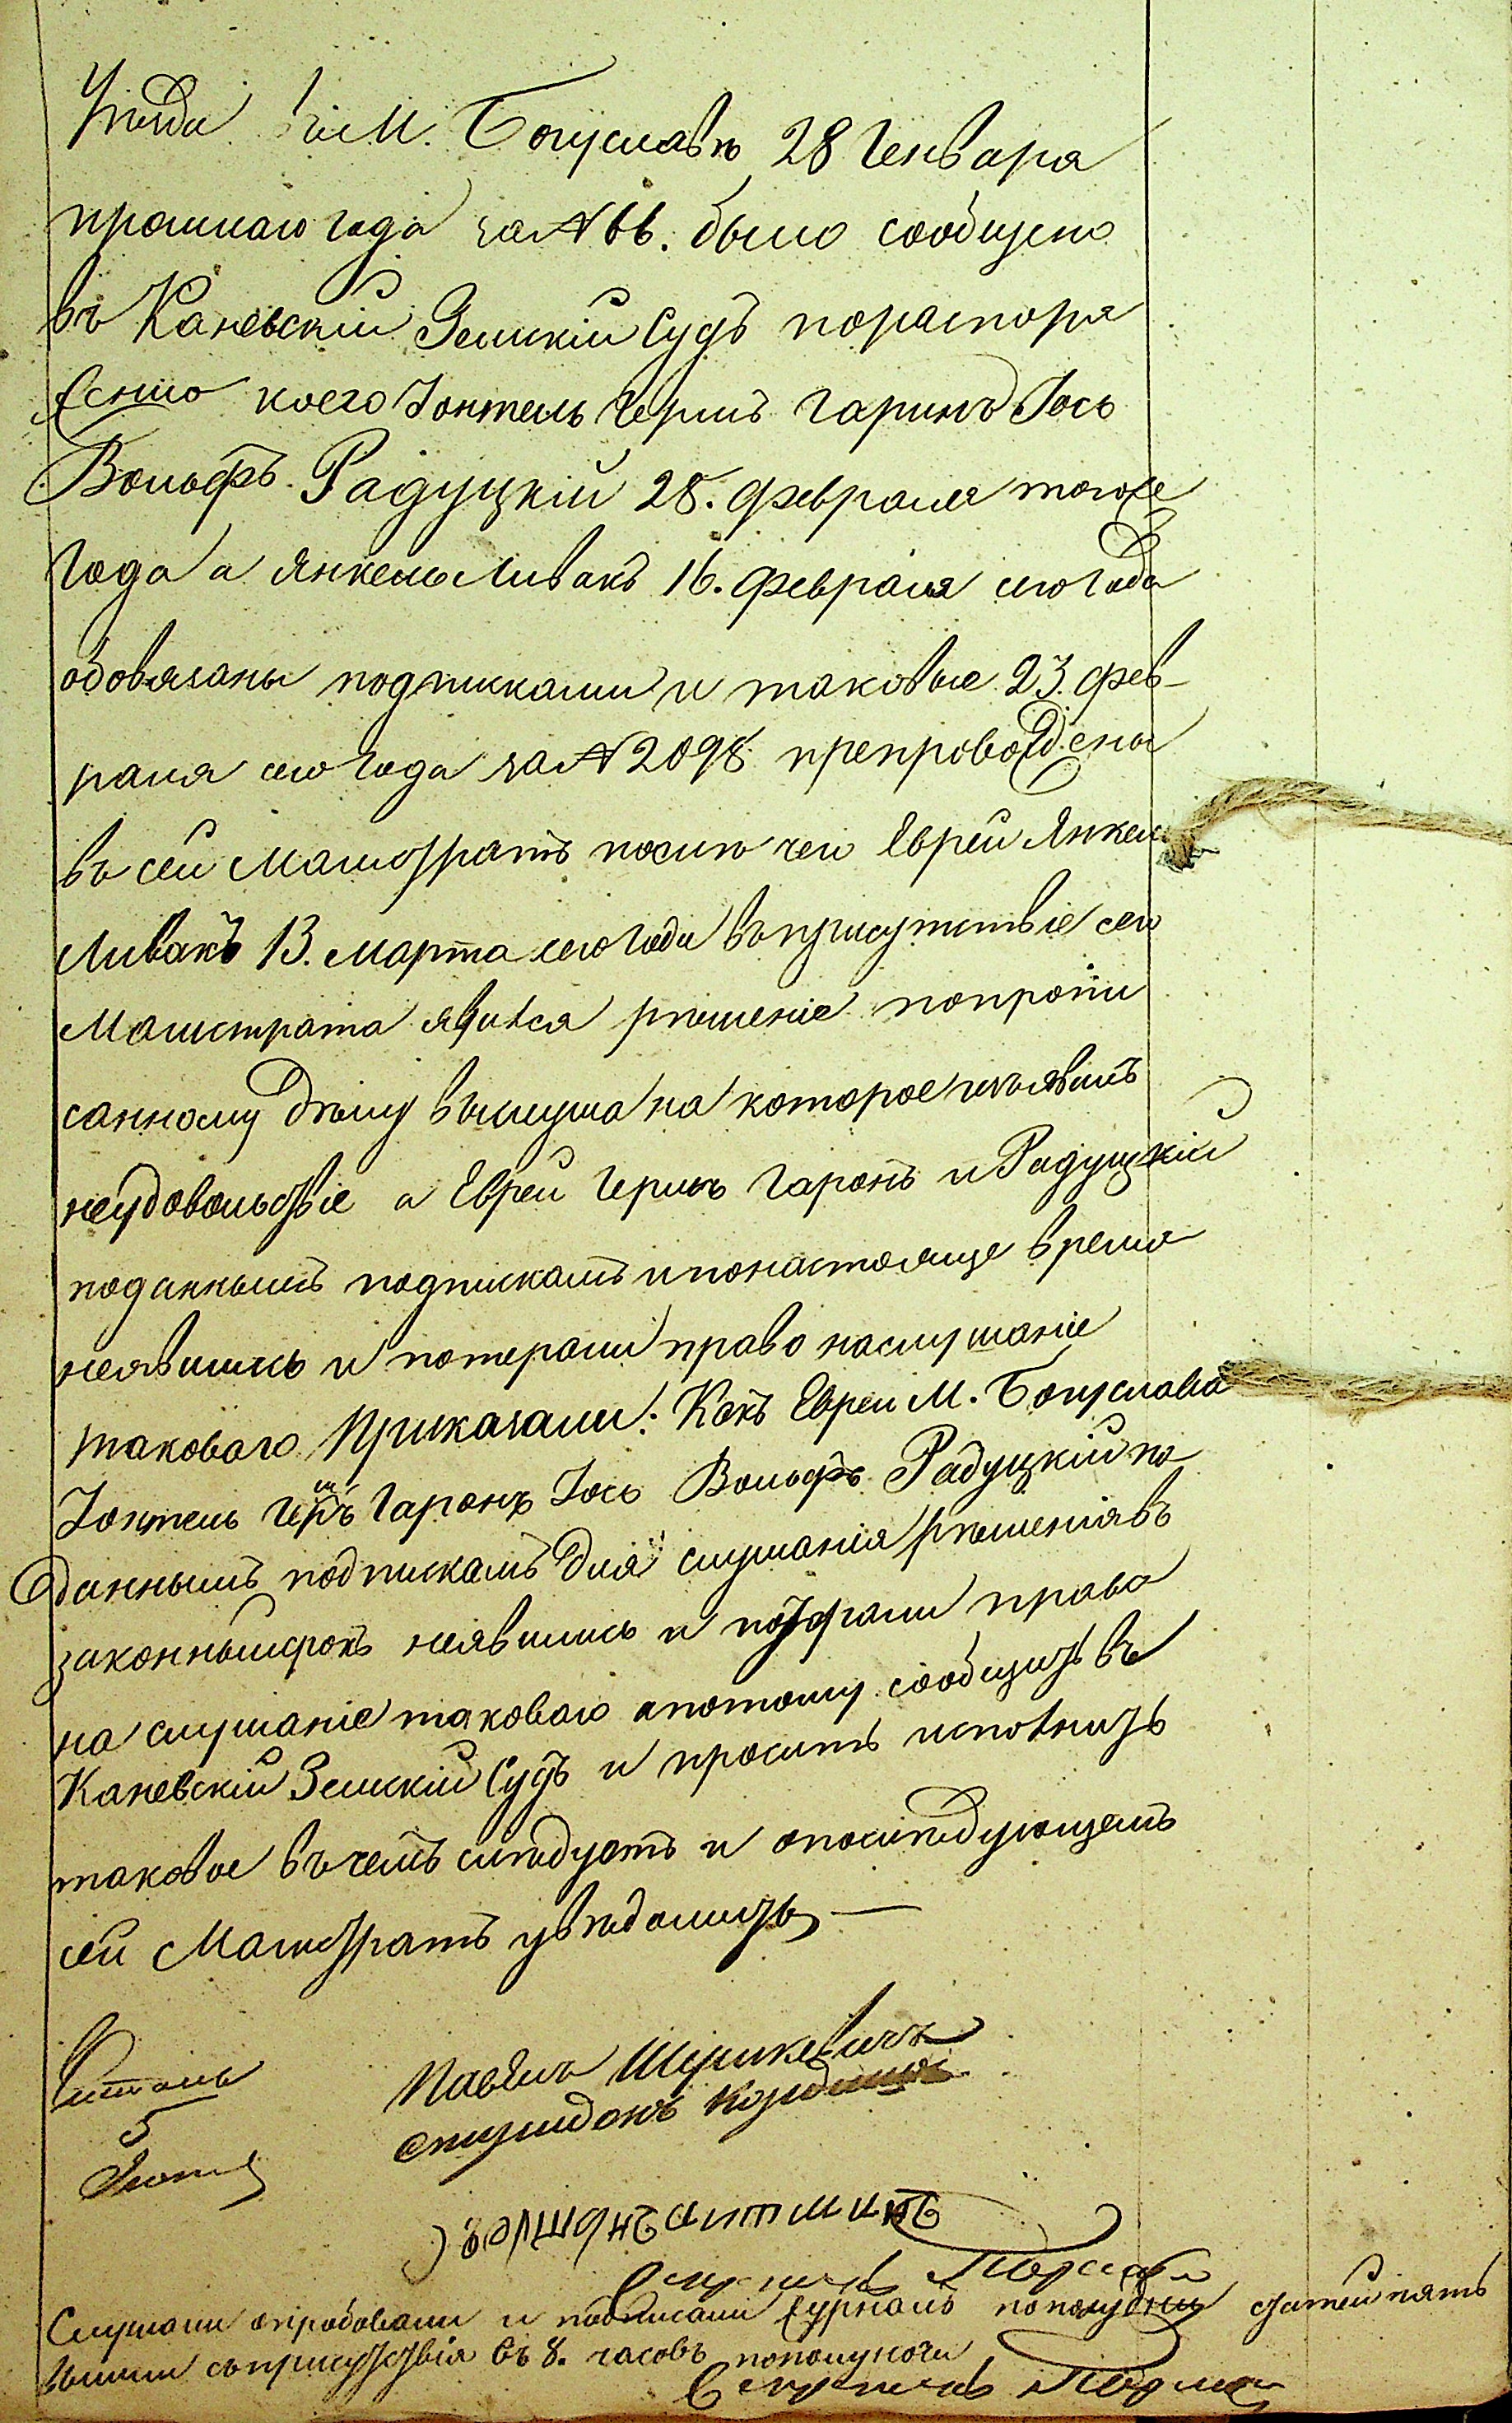 Уѣзда въ М. Богуславѣ 28 Генваря
прошлаго года за № 66. было сообщено
въ Каневскій Земскій Судъ по распоря
женію коего Іонтель Гершъ Гаринъ Іось
Вольфъ Радуцкій 28. февраля тогоже
года а Янкель Ливакъ 16. февраля сего года
обовязаны подписками и таковые 23. фев-
раля сего года за № 2098 препровождены
въ сей Магистратъ после чего Еврей Янкель
Ливакъ 13. марта сего года въ присутствіе сего
Магистрата явился рѣшеніе попропи
санному дѣлу выслушалъ на которое изъявилъ
неудовольствіе а Евреи Гершъ Гаронъ и Радуцкій
поданнымъ подпискамъ и понастояще время
неявились и потеряли право наслушаніе
таковаго Приказали: Какъ Евреи М. Богуслава
Іонтель Гершъ Гаронъ Іось Вольфъ Радуцкій по
даннымъ подпискамъ для слушанія рѣшенія въ
законный срокъ неявились и потеряли право
на слушаніе таковаго а потому сообщить въ
Каневскій Земскій Судъ и просить исполнить
таковое въ чемъ следуетъ и опоследующемъ
сей Магистратъ увѣдомить —
Читалъ
5
Павелъ
спиридонъ
Секретарь
Слушали опробовали и подписали журналъ пополудни статей пять
вышли съ присутствія въ 8. часовъ пополуночи
Секретарь